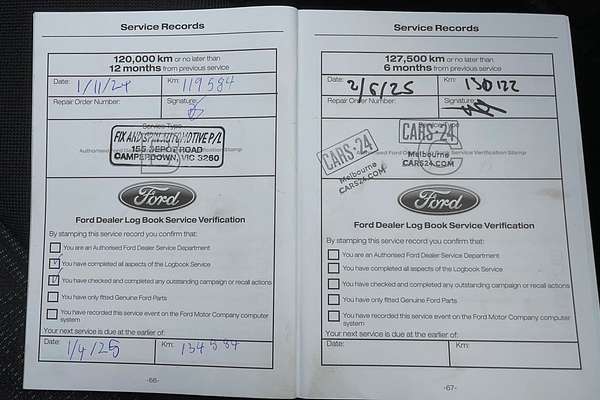 Service Records
120,000 km or no later than
12 months from previous service
Date: 1/11/24 Km: 119584
Repair Order Number: Signature:
Service Type
FIX AND SPIN AUTOMOTIVE P/L
155 DEPOT ROAD
CAMPERDOWN, VIC 3260
Ford
Ford Dealer Log Book Service Verification
By stamping this service record you confirm that:
You are an Authorised Ford Dealer Service Department
You have completed all aspects of the Logbook Service
You have checked and completed any outstanding campaign or recall actions
You have only fitted Genuine Ford Parts
You have recorded this service event on the Ford Motor Company computer
system
Your next service is due at the earlier of:
Date: 1/4/25 Km: 134584
-66-
Service Records
127,500 km or no later than
6 months from previous service
Date: 2/5/25 Km: 130122
Repair Order Number: Signature:
Service Type
CARS·24
Melbourne
CARS24.COM
CARS·24
Melbourne
CARS24.COM
Service Verification Stamp
Ford
Ford Dealer Log Book Service Verification
By stamping this service record you confirm that:
You are an Authorised Ford Dealer Service Department
You have completed all aspects of the Logbook Service
You have checked and completed any outstanding campaign or recall actions
You have only fitted Genuine Ford Parts
You have recorded this service event on the Ford Motor Company computer
system
Your next service is due at the earlier of:
Date: Km:
-67-